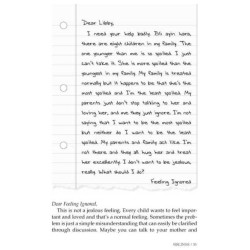 Dear Libby,
I need your help badly. I'm nine here,
there are eight children in my family. The
one younger than me is so spoiled. I just
can't take it. She is more spoiled than the
youngest in my family. My family is treated
normally but it happens to be that she is
the most spoiled. I'm the least spoiled. My
parents just don't stop talking to her and
loving her, and me they just ignore. I'm not
saying that I want to be the most spoiled
but neither do I want to be the least
spoiled. My parents and family act like I'm
not there and they all hug her and treat
her excellently. I don't want to be jealous,
really. What should I do?
Feeling Ignored
Dear Feeling Ignored,
This is not a jealous feeling. Every child wants to feel impor-
tant and loved and that's a normal feeling. Sometimes the prob-
lem is just a simple misunderstanding that can easily be clarified
through discussion. Maybe you can talk to your mother and